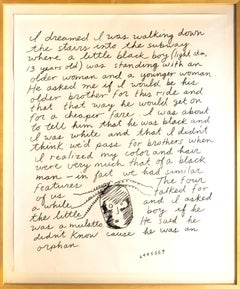 I dreamed I was walking down
the stairs into the subway
where a little black boy (light skin,
13 years old) was standing with an
older woman and a younger woman
He asked me if I would be his
older brother for this ride and
that that way he would get on
for a cheaper fare. I was about
to tell him that he was black and
I was white and that I didn't
think we'd pass for brothers when
I realized my color and hair
were very much that of a black
man — in fact we had similar
features The four
of us talked for
a while and I asked
the little boy if he
was a mulatto He said he
didn't know cause he was an
orphan